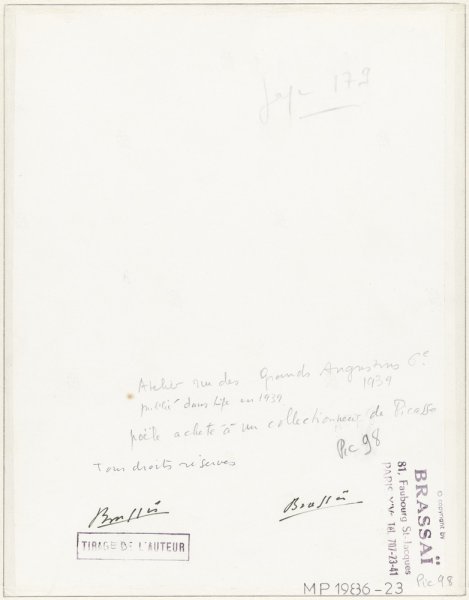 page 179
Atelier rue des Grands Augustins Ce.
1939
publié dans Life en 1939
poële acheté à un collectionneur de Picasso
Pic 98
Tous droits réservés
Brassaï
Brassaï
TIRAGE DE L'AUTEUR
© copyright by
BRASSAÏ
81, Faubourg St-Jacques
PARIS XIVe Tél. 707-23-41
Pic 98
MP1986-23